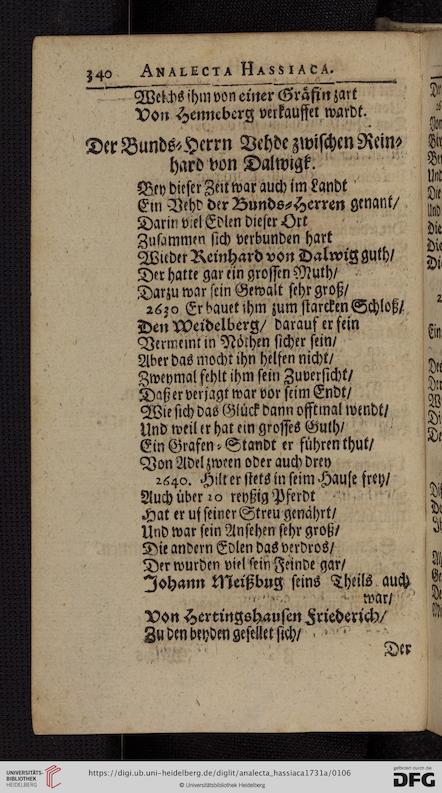 340 ANALECTA HASSIACA.
Welchs ihm von einer Gräfin zart
Von Henneberg verkauffet wardt.
Der Bunds-Herrn Vehde zwischen Rein-
hard von Dalwigk.
Bey dieser Zeit war auch im Landt
Ein Vehd der Bunds-Herren genant/
Darin viel Edlen dieser Ort
Zusammen sich verbunden hart
Wieder Reinhard von Dalwig guth/
Der hatte gar ein grossen Muth/
Darzu war sein Gewalt sehr groß/
2630 Er bauet ihm zum starcken Schloß/
Den Weidelberg/ darauf er sein
Vermeint in Nöthen sicher sein/
Aber das mocht ihn helfen nicht/
Zweymal fehlt ihm sein Zuversicht/
Daß er verjagt war vor seim Endt/
Wie sich das Glück dann offtmal wendt/
Und weil er hat ein grosses Guth/
Ein Grafen-Standt er führen thut/
Von Adel zween oder auch drey
2640. Hilt er stets in seim Hause frey/
Auch über 20 reyßig Pferdt
Hat er uf seiner Streu genährt/
Und war sein Ansehen sehr groß/
Die andern Edlen das verdros/
Der wurden viel sein Feinde gar/
Johann Meißbug seins Theils auch
war/
Von Hertingshausen Friederich/
Zu den beyden gesellet sich/
Der
UNIVERSITÄTS-
BIBLIOTHEK
HEIDELBERG
https://digi.ub.uni-heidelberg.de/diglit/analecta_hassiaca1731a/0106
© Universitätsbibliothek Heidelberg
gefördert durch die
DFG